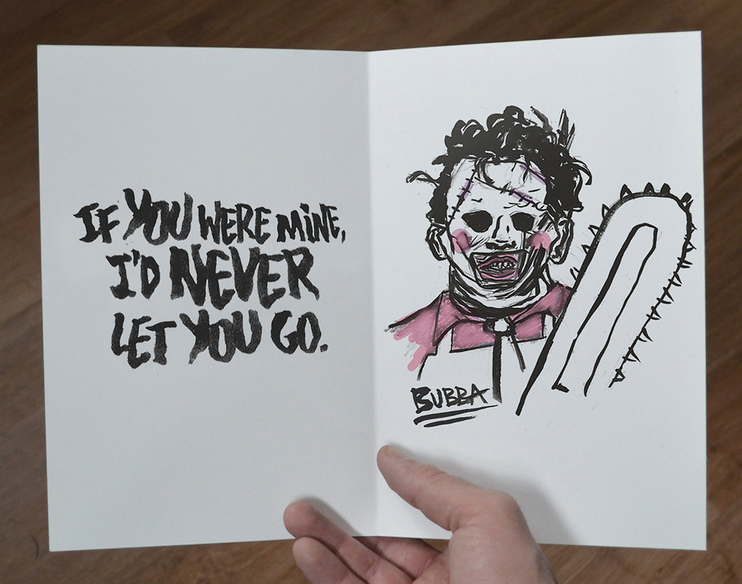 IF YOU WERE MINE,
I'D NEVER
LET YOU GO.
BUBBA